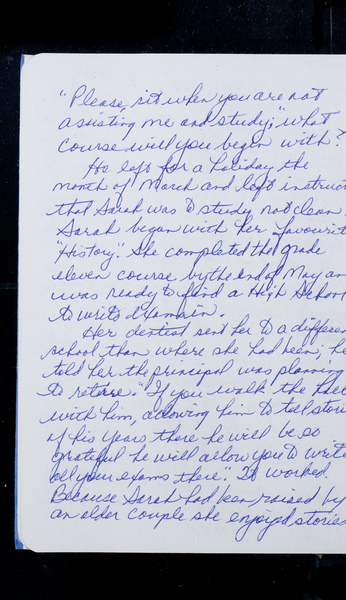 "Please, sit when you are not
assisting me and study;" what
course will you begin with?
He left for a holiday the
month of March and left instruc
that Sarah was to study, not clean.
Sarah began with her favourite
"History". She completed the grade
eleven course by the end of May an
was ready to find a High School
to write exam in.
Her dentist sent her to a differen
school than where she had been; he
told her the principal was planning
to retire. "If you walk the hall
with him, allowing him to tell stori
of his years there he will be so
grateful he will allow you to write
all your exams there". It worked.
Because Sarah had been raised by
an older couple she enjoyed stories